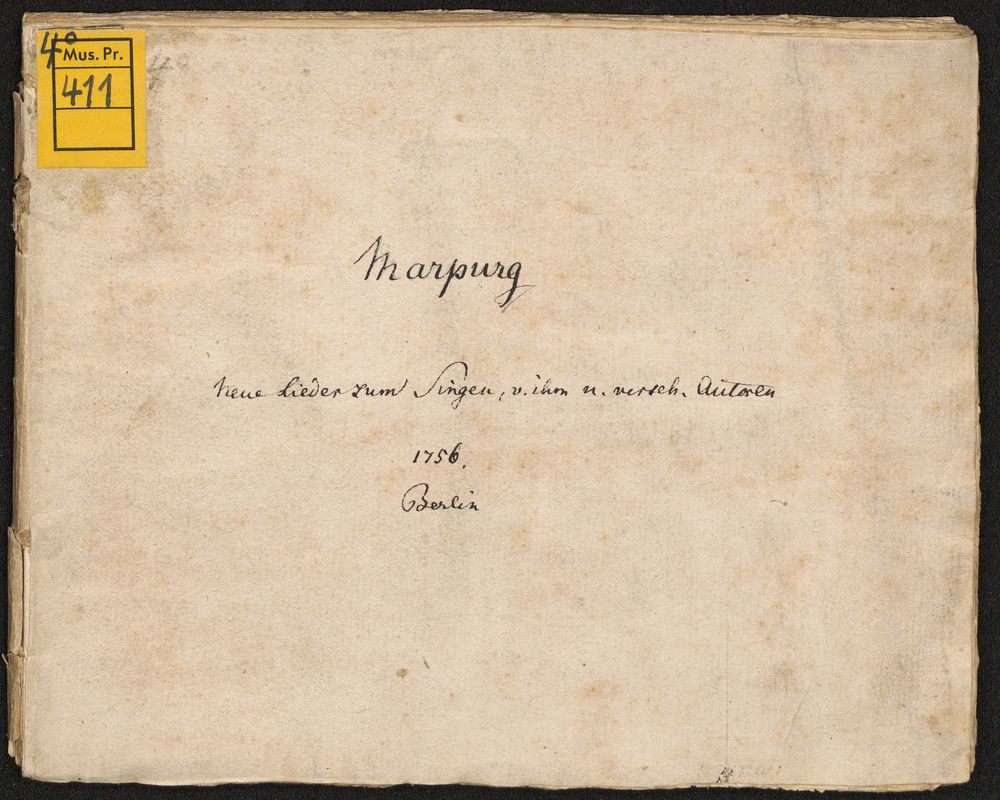 4° Mus. Pr.
411
Marpurg
Neue Lieder zum Singen, v. ihm u. versch. Autoren
1756.
Berlin